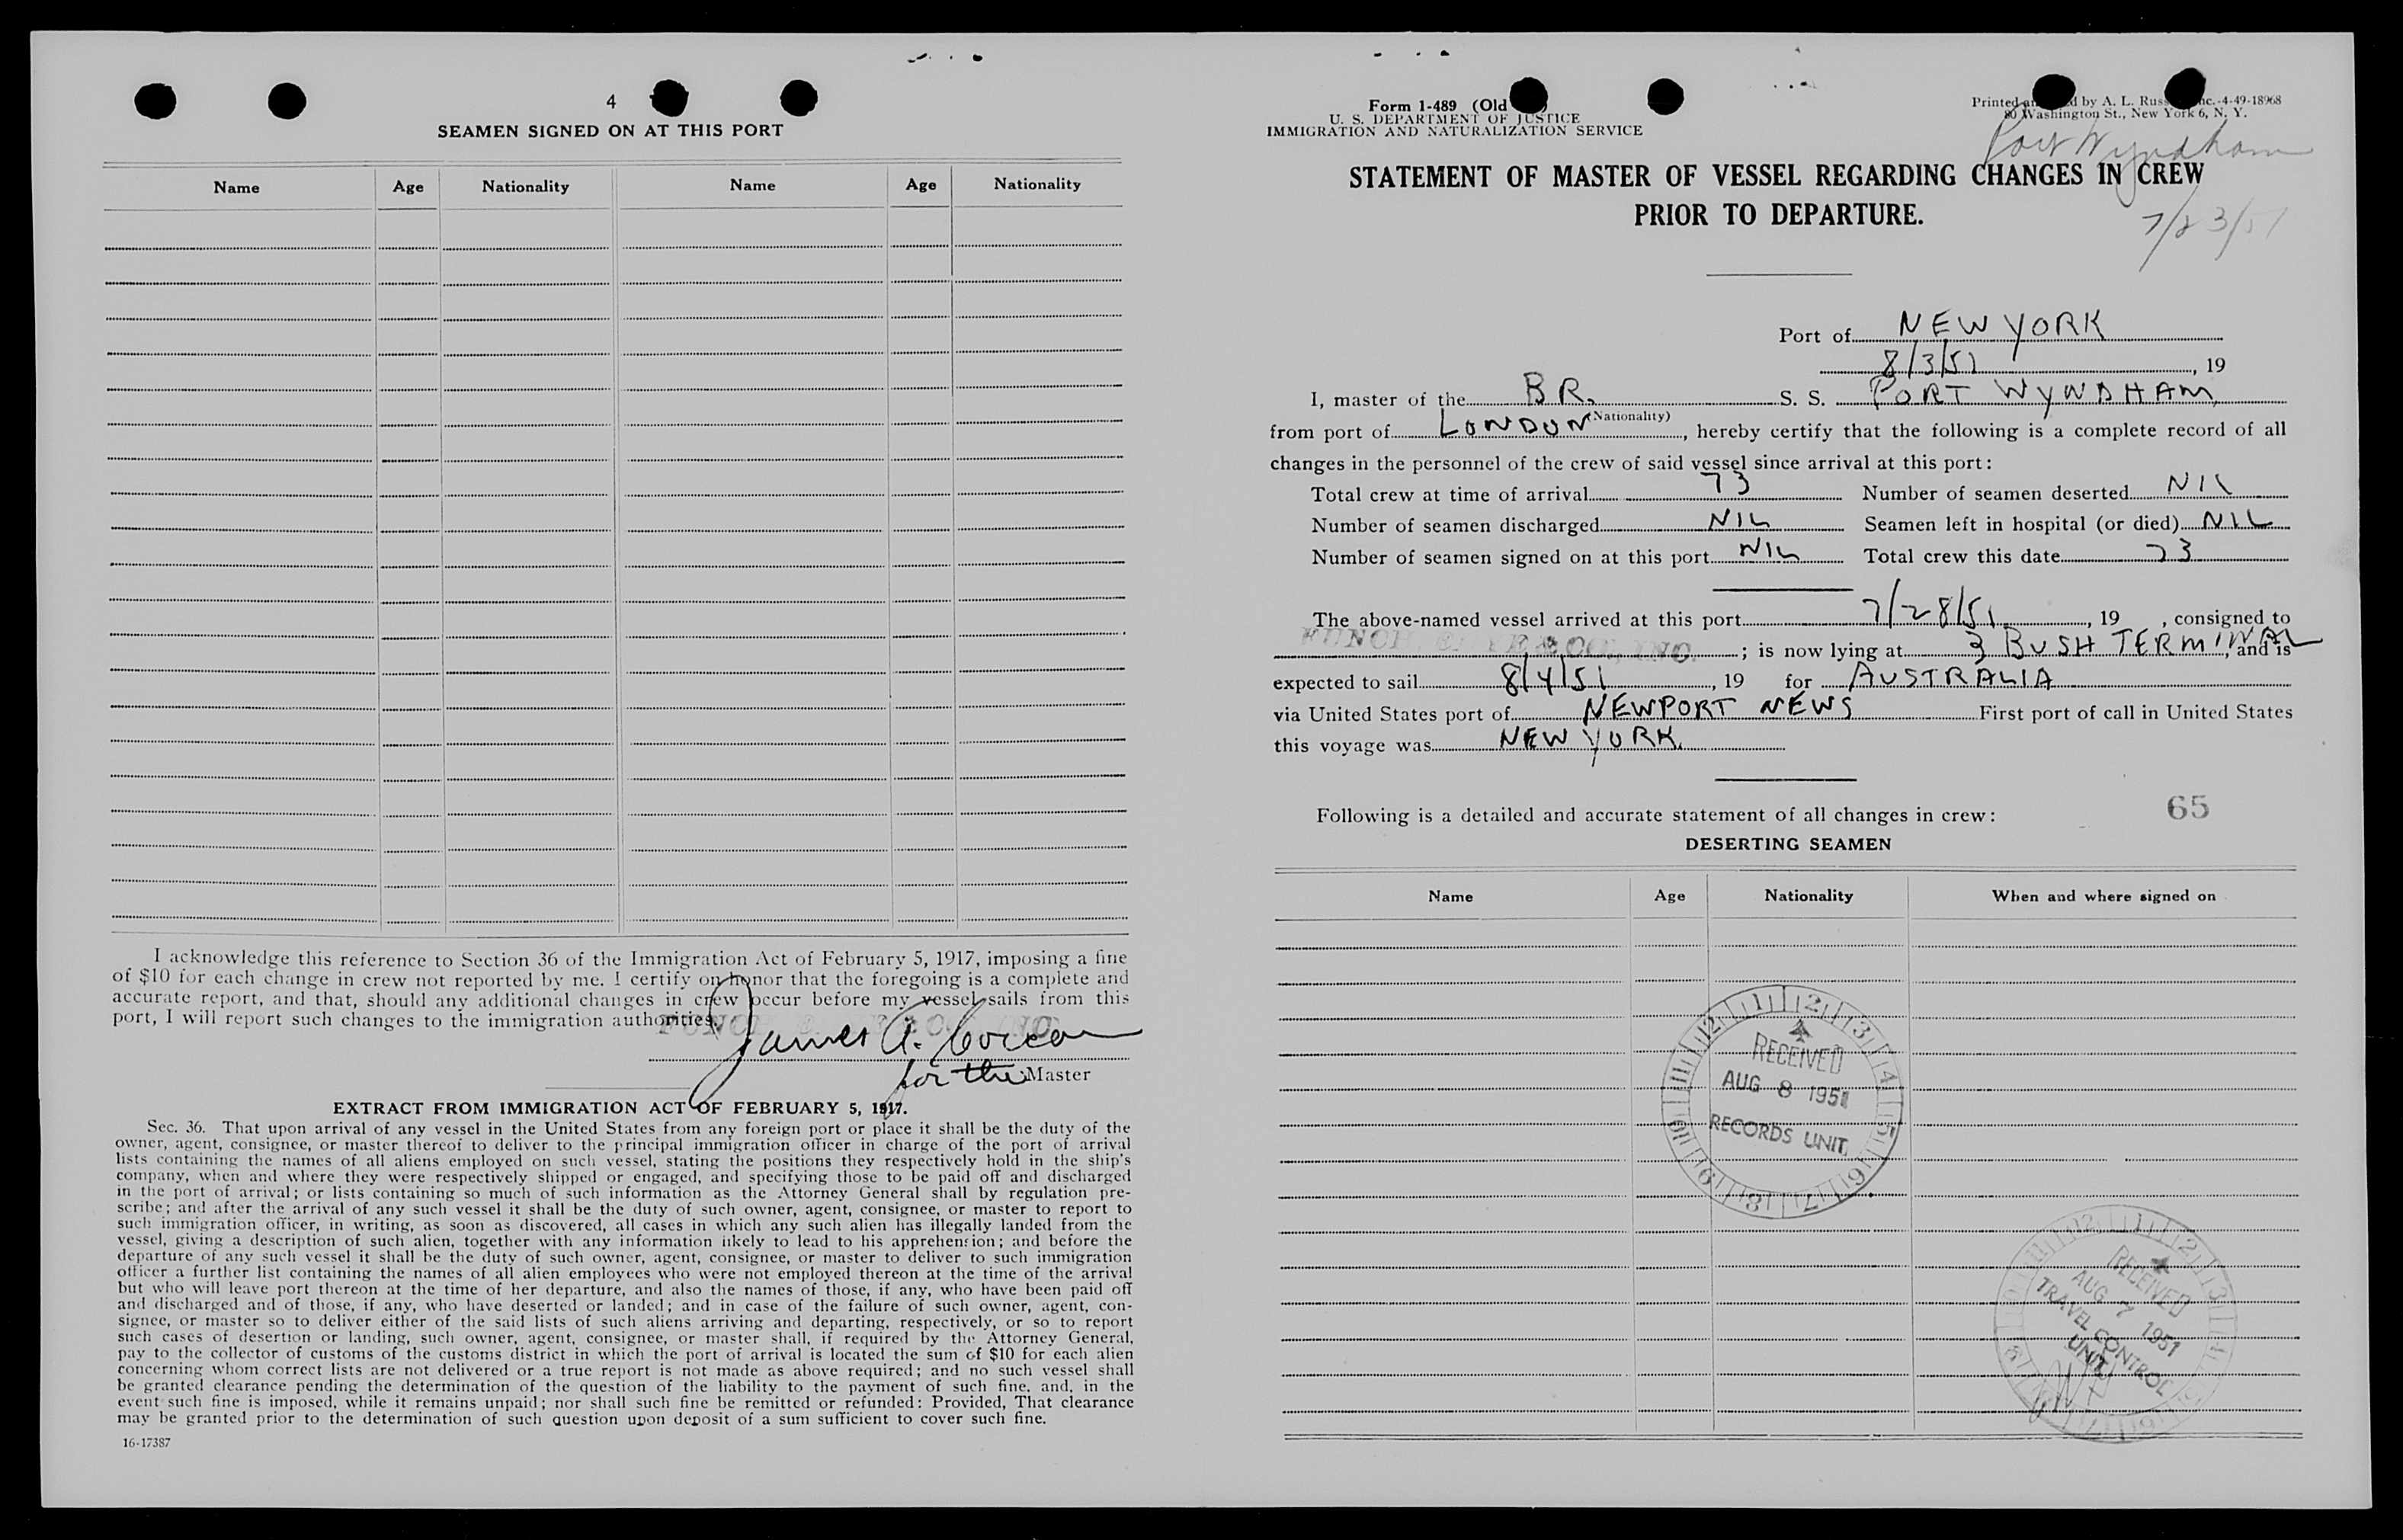 4
SEAMEN SIGNED ON AT THIS PORT
Name Age Nationality Name Age Nationality
I acknowledge this reference to Section 36 of the Immigration Act of February 5, 1917, imposing a fine
of $10 for each change in crew not reported by me. I certify on honor that the foregoing is a complete and
accurate report, and that, should any additional changes in crew occur before my vessel sails from this
port, I will report such changes to the immigration authorities.
James A.
for the Master
EXTRACT FROM IMMIGRATION ACT OF FEBRUARY 5, 1917.
Sec. 36. That upon arrival of any vessel in the United States from any foreign port or place it shall be the duty of the
owner, agent, consignee, or master thereof to deliver to the principal immigration officer in charge of the port of arrival
lists containing the names of all aliens employed on such vessel, stating the positions they respectively hold in the ship's
company, when and where they were respectively shipped or engaged, and specifying those to be paid off and discharged
in the port of arrival; or lists containing so much of such information as the Attorney General shall by regulation pre-
scribe; and after the arrival of any such vessel it shall be the duty of such owner, agent, consignee, or master to report to
such immigration officer, in writing, as soon as discovered, all cases in which any such alien has illegally landed from the
vessel, giving a description of such alien, together with any information likely to lead to his apprehension; and before the
departure of any such vessel it shall be the duty of such owner, agent, consignee, or master to deliver to such immigration
officer a further list containing the names of all alien employees who were not employed thereon at the time of the arrival
but who will leave port thereon at the time of her departure, and also the names of those, if any, who have been paid off
and discharged and of those, if any, who have deserted or landed; and in case of the failure of such owner, agent, con-
signee, or master so to deliver either of the said lists of such aliens arriving and departing, respectively, or so to report
such cases of desertion or landing, such owner, agent, consignee, or master shall, if required by the Attorney General,
pay to the collector of customs of the customs district in which the port of arrival is located the sum of $10 for each alien
concerning whom correct lists are not delivered or a true report is not made as above required; and no such vessel shall
be granted clearance pending the determination of the question of the liability to the payment of such fine, and, in the
event such fine is imposed, while it remains unpaid; nor shall such fine be remitted or refunded: Provided, That clearance
may be granted prior to the determination of such question upon deposit of a sum sufficient to cover such fine.
16-17387
Form 1-489 (Old
U. S. DEPARTMENT OF JUSTICE
IMMIGRATION AND NATURALIZATION SERVICE
Printed by A. L. -4-49-18968
80 Washington St., New York 6, N. Y.
Port Wyndham
STATEMENT OF MASTER OF VESSEL REGARDING CHANGES IN CREW
PRIOR TO DEPARTURE.
7/23/51
Port of NEW YORK
8/3/51, 19
I, master of the BR. S. S. PORT WYNDHAM
(Nationality)
from port of LONDON, hereby certify that the following is a complete record of all
changes in the personnel of the crew of said vessel since arrival at this port:
Total crew at time of arrival 73 Number of seamen deserted NIL
Number of seamen discharged NIL Seamen left in hospital (or died) NIL
Number of seamen signed on at this port NIL Total crew this date 73
The above-named vessel arrived at this port 7/28/51, 19 , consigned to
; is now lying at 3 BUSH TERMINAL, and is
expected to sail 8/4/51, 19 for AUSTRALIA
via United States port of NEWPORT NEWS First port of call in United States
this voyage was NEW YORK.
Following is a detailed and accurate statement of all changes in crew:
65
DESERTING SEAMEN
Name Age Nationality When and where signed on
12 1 2 3 4 5 6 7 8 9 10 11
RECEIVED
AUG 8 1951
RECORDS UNIT
RECEIVED
AUG 7 1951
TRAVEL CONTROL
UNIT